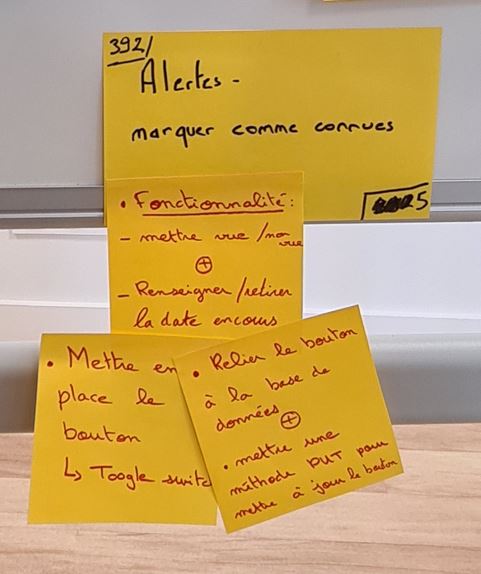 392/
Alertes -
marquer comme connues
5
• Fonctionnalité :
- mettre vue / non
vue
⊕
- Renseigner / retirer
la date encours
• Mettre en
place le
bouton
↳ Toogle switc
• Relier le bouton
à la base de
données ⊕
• mettre une
méthode PUT pour
mettre à jour le bouton